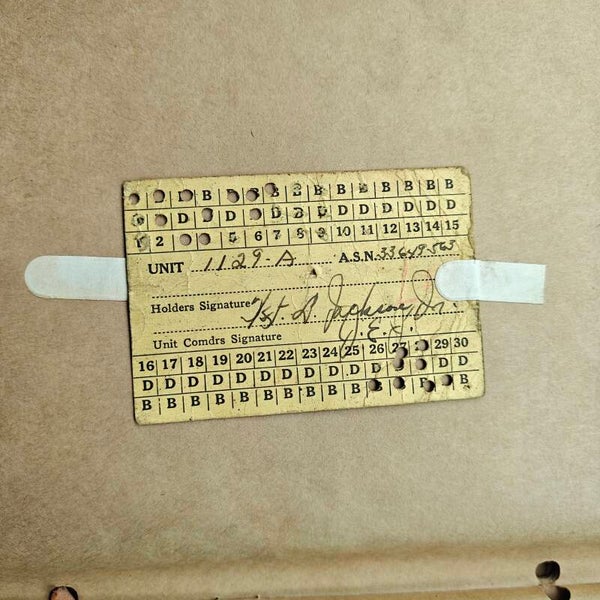 B B B B B B B B B B B
D D D D B D D D D D D
2 5 6 7 8 9 10 11 12 13 14 15
UNIT 1129-A A.S.N. 33649563
Holders Signature Jackson Jr.
Unit Comdrs Signature J.E.J.
16 17 18 19 20 21 22 23 24 25 26 27 29 30
D D D D D D D D D D D D D
B B B B B B B B B B B B B